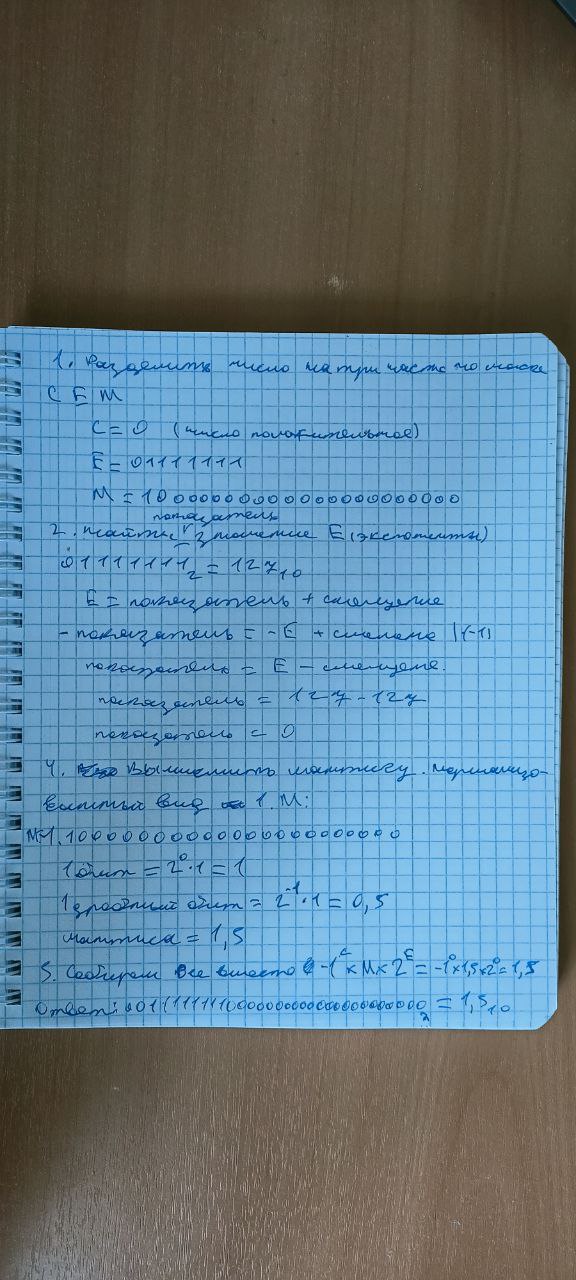 1. Разделить число на три части по маске
С Е М
С = 0 (число положительное)
Е = 01111111
М = 10000000000000000000000
показатель
2. Найти значение Е (экспоненты)
01111111₂ = 127₁₀
Е = показатель + смещение
- показатель = -Е + смещене |(-1)
показатель = Е - смещене.
показатель = 127 - 127
показатель = 0
4. Вычислить мантису. нормализо-
ванный вид 1.М:
М=1.10000000000000000000000
1 бит = 2⁰·1 = 1
1 дробный бит = 2⁻¹·1 = 0,5
мантиса = 1,5
5. Собираем все вместо -1ᶜ × М × 2ᴱ = -1⁰×1,5×2⁰ = 1,5
Ответ: 00111111110000000000000000000000₂ = 1,5₁₀